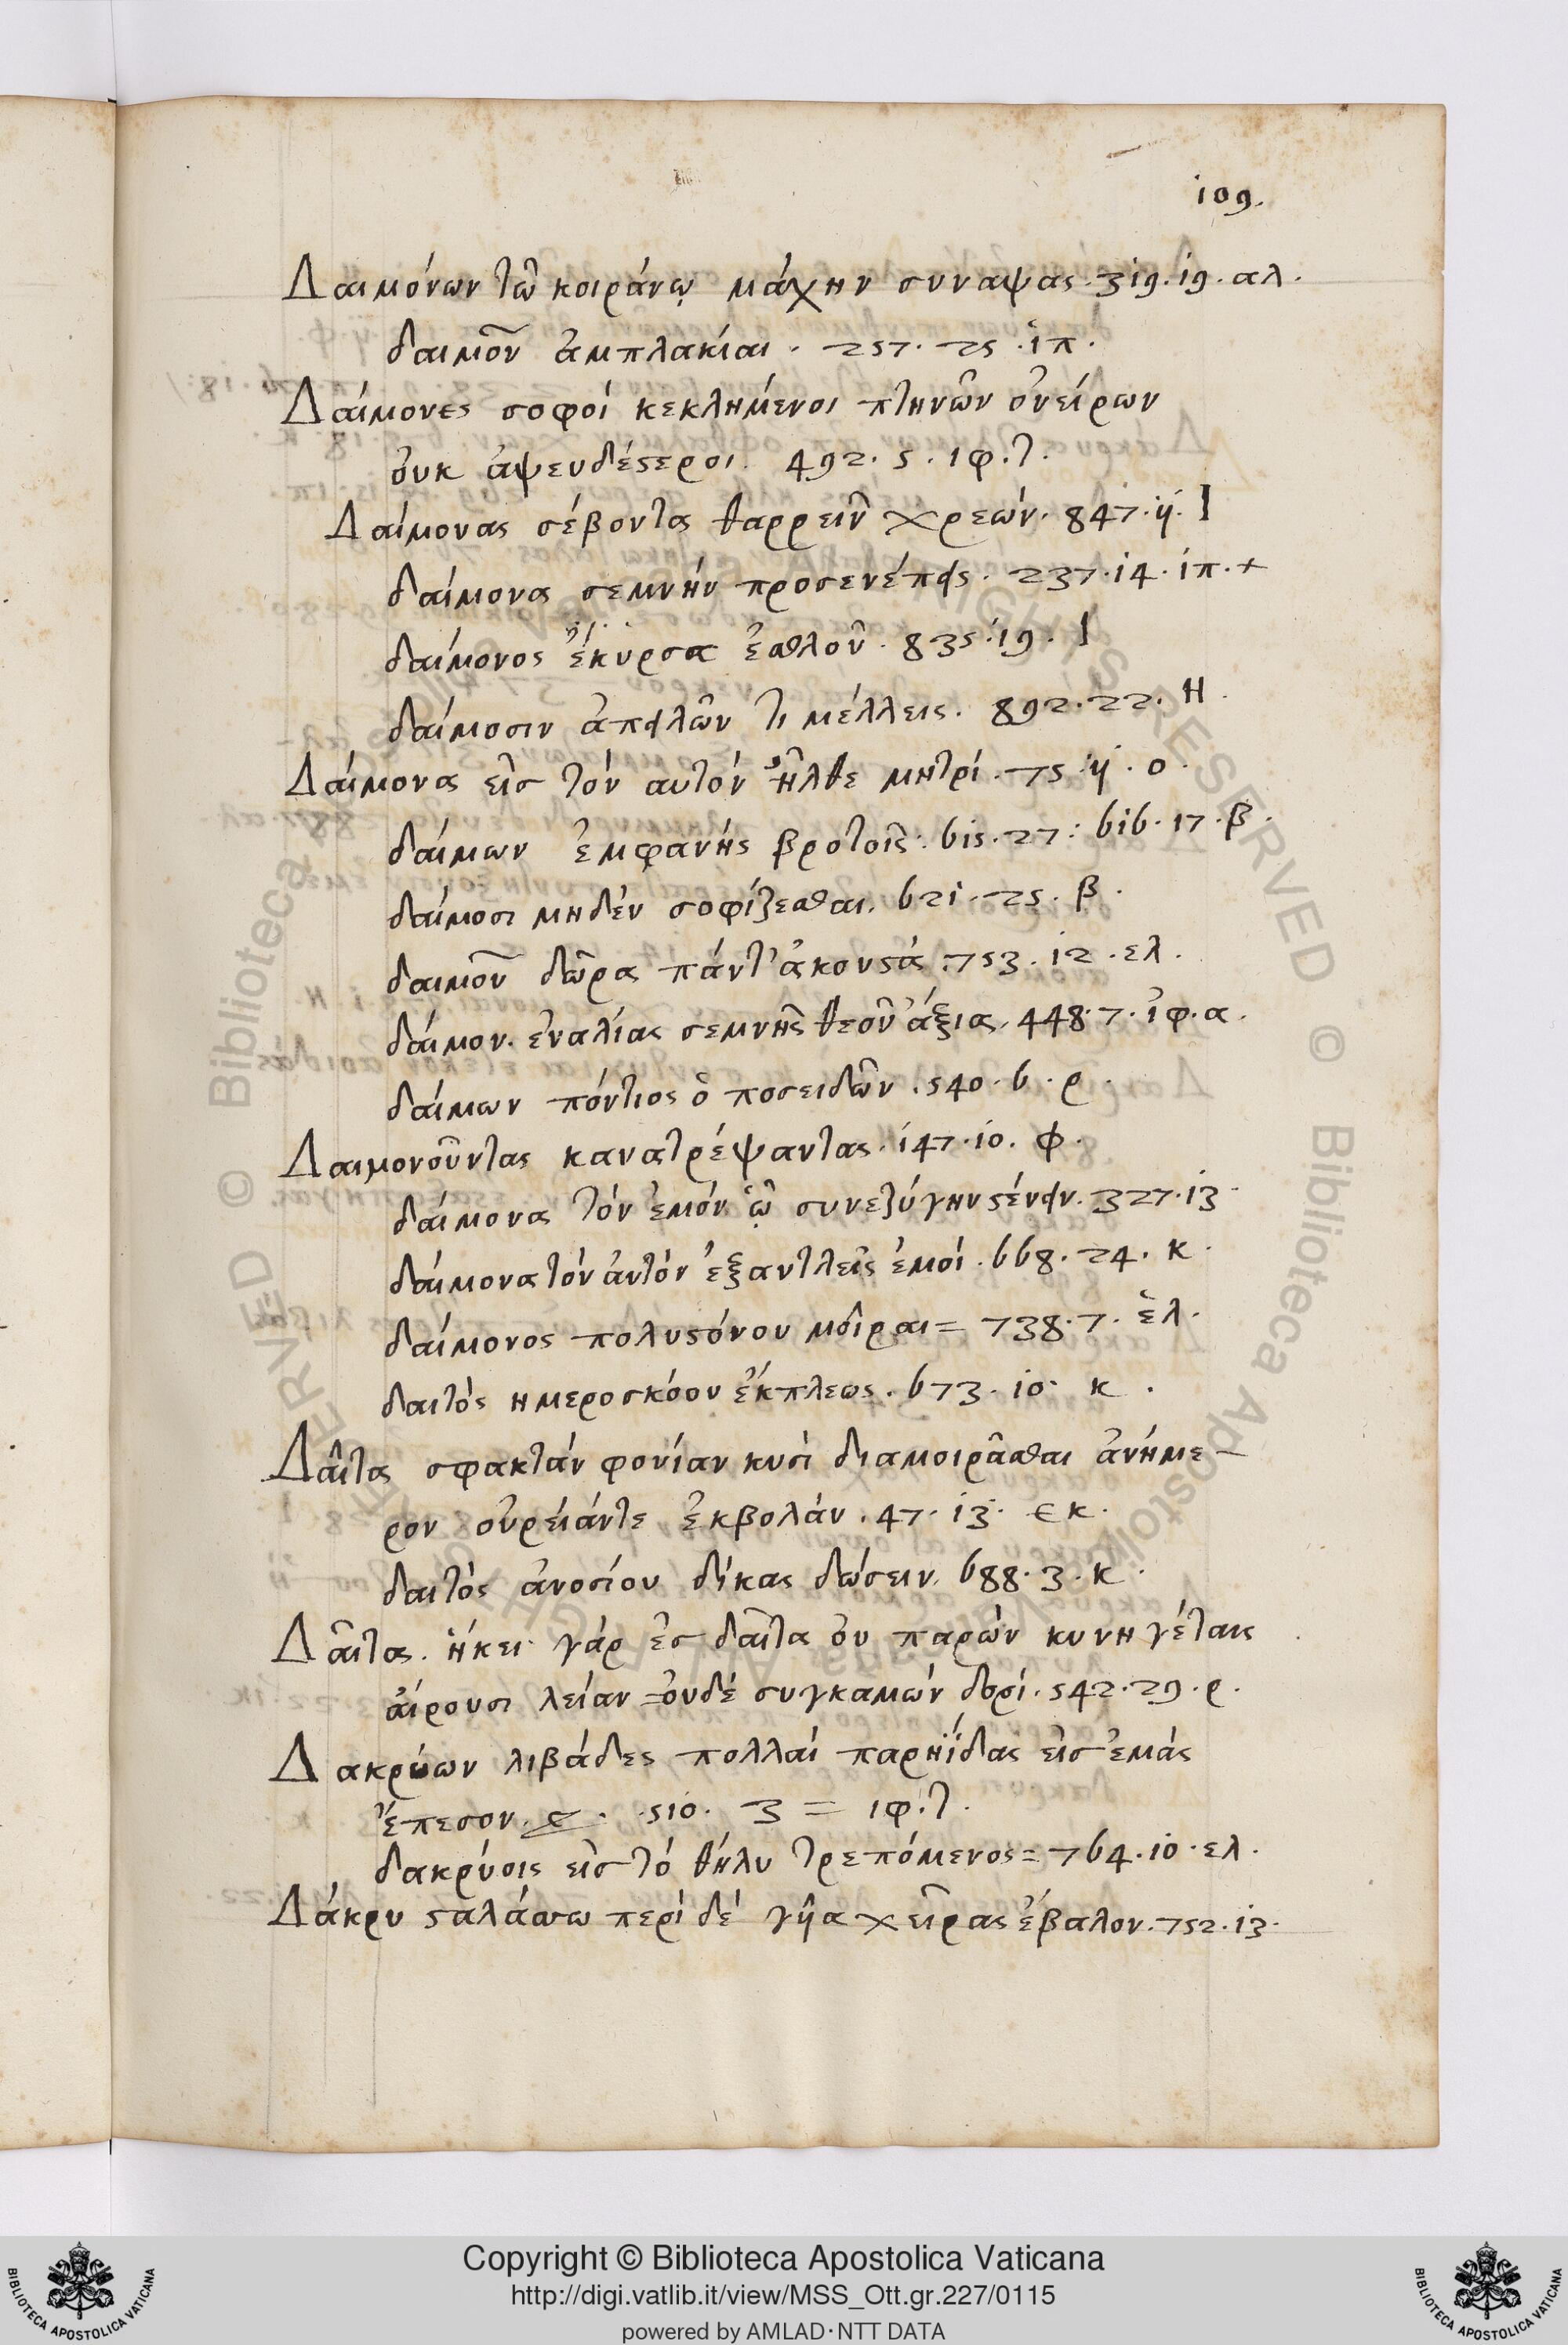 109.
Δαιμόνων τῶ κοιράνῳ μάχην συναψας. 319. 19. αλ.
δαιμοῦν ἀμπλακίαι. 257. 25. ἱπ.
Δαίμονες σοφοί κεκλημένοι πτηνῶν ὀνείρων
ὀυκ ἀψευδέςεροι. 492. 5. ιφ. τ.
Δαίμονας σέβοντας θαρρεῖν χρεών. 847. ij. I
δαίμονα σεμνήν προσενέπεις. 237. 14. ἱπ. +
δαίμονος ἔκυρσα ἐσθλοῦ. 835. 19. I
δαίμοσιν ἀπειλῶν τι μέλλεις. 892. 22. H.
Δαίμονα εἰσ τόν αυτόν ἦλθε μητρί. 75. ij. ο.
δαίμων ἐμφανής βροτοῖς. 615. 27: 616. 17. β.
δαίμοσι μηδέν σοφίζεσθαι. 621. 25. β.
δαιμοῦν δῶρα πάντ' ἀκουςά. 753. 12. ελ.
δαίμον. ἐναλίας σεμνῆς θεοῦ ἄξια. 448. 7. ἰφ. α.
δαίμων πόντιος ὁ ποσειδῶν. 540. 6. ρ.
Δαιμονοῦντας καναστρέψαντας. 147. 10. φ.
δαίμονα τόν ἐμόν ᾧ συνεζύγην ςένειν. 327. 13
δαίμονα τόν ἀυτόν ἐξαντλεῖς ἐμοί. 668. 24. κ.
δαίμονος πολυςόνου μοῖραι = 738. 7. ἑλ.
δαιτός ημεροσκόου ἔκπλεως. 673. 10. κ.
Δαῖτα σφακτάν φονίαν κυσὶ διαμοιρᾶσθαι ἀνήμε-
ρον οὐρείάντε ἐκβολάν. 47. 13. εκ.
δαιτός ἀνοσίου δίκας δώσειν. 688. 3. κ.
Δαῖτα. ἥκει γάρ ἐσ δαῖτα ὀυ παρών κυνηγέταις
ἀίρουσι λείαν = ὀυδέ συγκαμών δορί. 542. 29. ρ.
Δακρύων λιβάδες πολλαί παρηΐδας εἰσ ἐμάς
ἔπεσον. 510. 3 = ιφ. τ.
δακρύοις εἰσ τό θήλυ τρεπόμενος = 764. 10. ελ.
Δάκρυ ςαλάσσω περί δέ γῦα χεῖρας ἔβαλον. 752. 13.
Copyright © Biblioteca Apostolica Vaticana
http://digi.vatlib.it/view/MSS_Ott.gr.227/0115
powered by AMLAD·NTT DATA